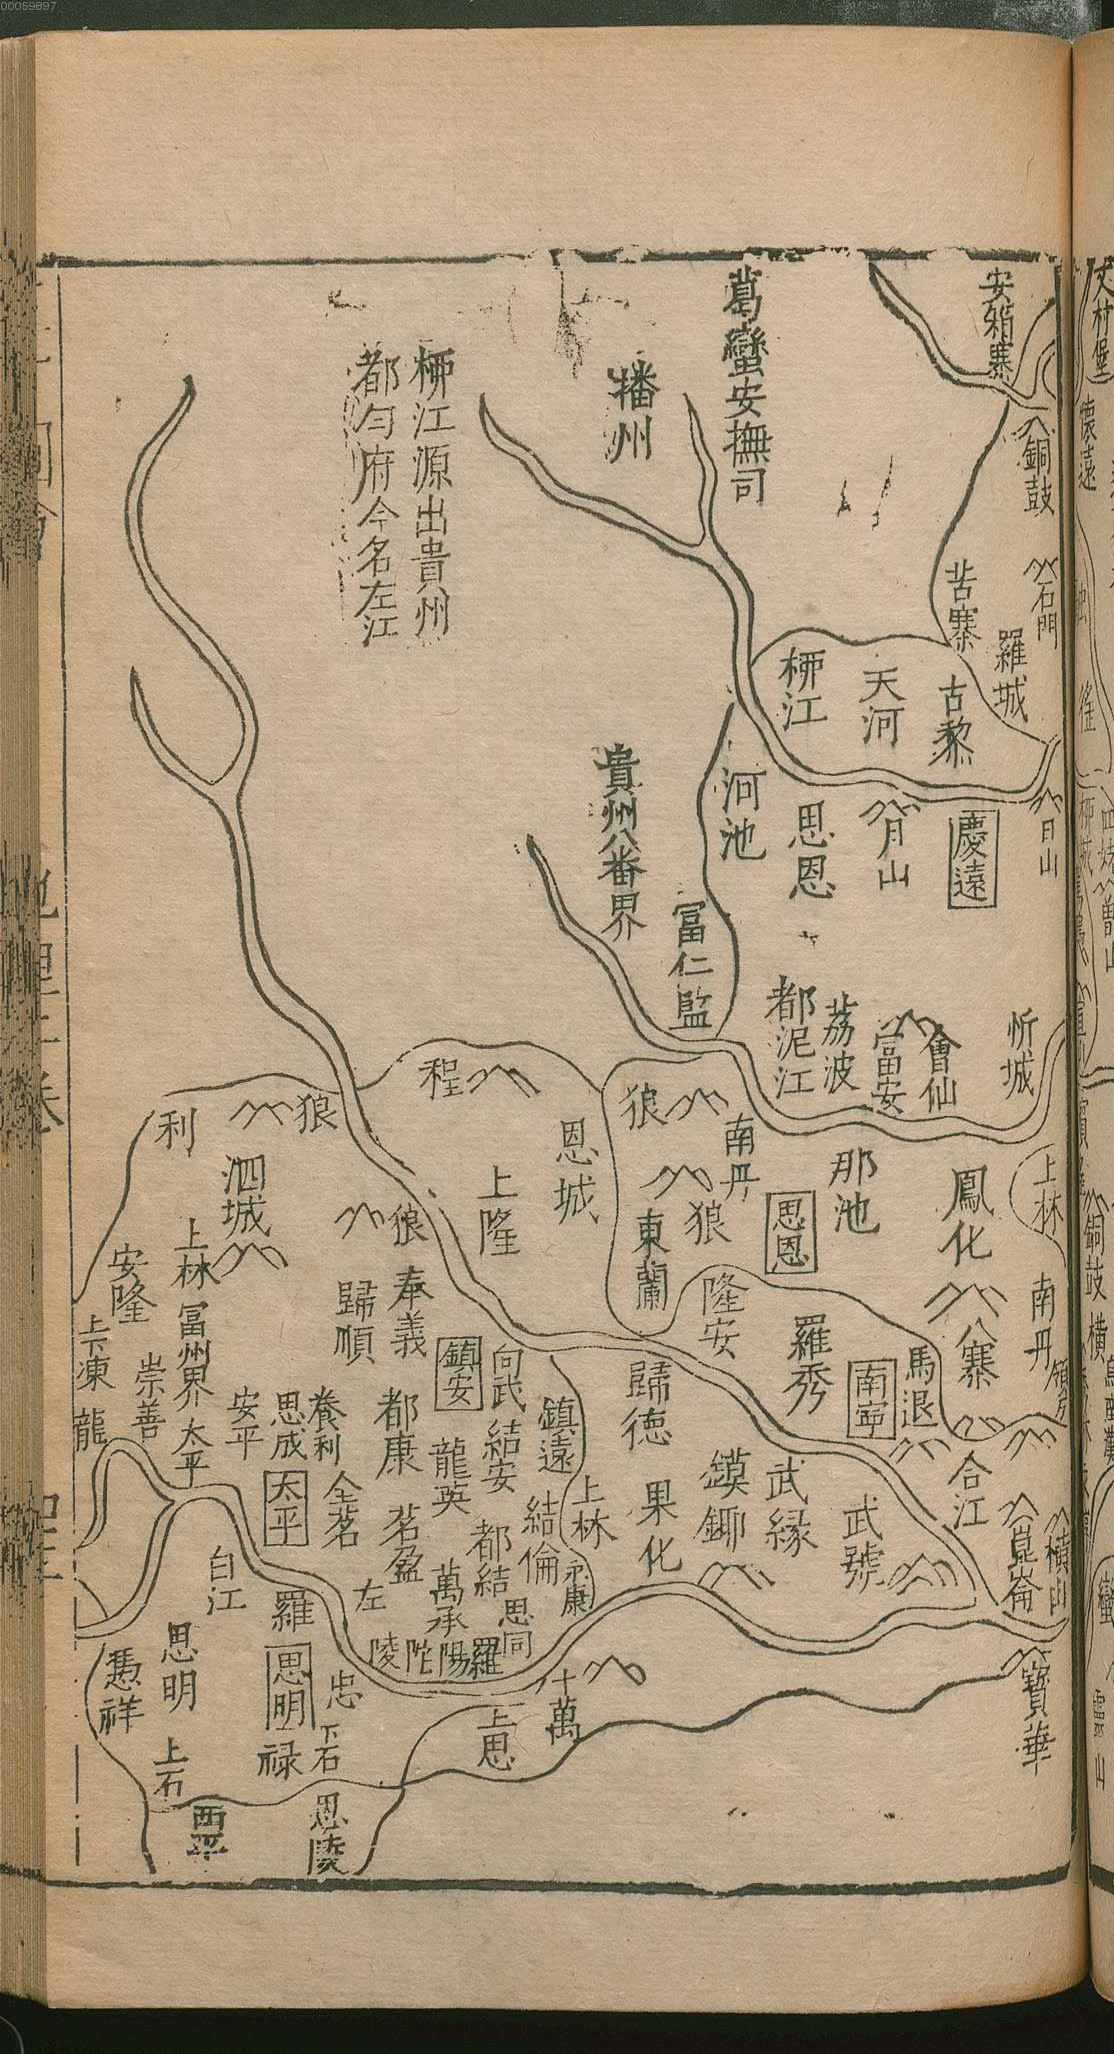 00059897
安湘寨
銅鼓
石門
羅城
苦寨
古黎
天河
柳江
葛蠻安撫司
播州
柳江源出貴州
都勻府今名左江
日山
慶遠
月山
思恩
河池
富仁監
貴州八番界
忻城
會仙
富安
荔波
都泥江
上林
南丹
鳳化
八寨
那池
思恩
南丹
狼
狼
東蘭
隆安
羅秀
馬退
南寧
合江
崑崙
橫山
寶華
武號
武緣
歸德
果化
恩城
程
上隆
狼
狼
利
泗城
上林
安隆
富州界
奉義
歸順
鎮安
向武
結安
鎮遠
上林
結倫
永康
都結
思同
龍英
萬承
都康
茗盈
養利
全茗
思成
太平
安平
太平
崇善
上下凍
龍
白江
羅
左
陵
陀
陽
羅
思明
思明
忠
下石
祿
上石
憑祥
西平
思陵
上思
十萬
丈村堡
懷遠
銅鼓
橫
靈山